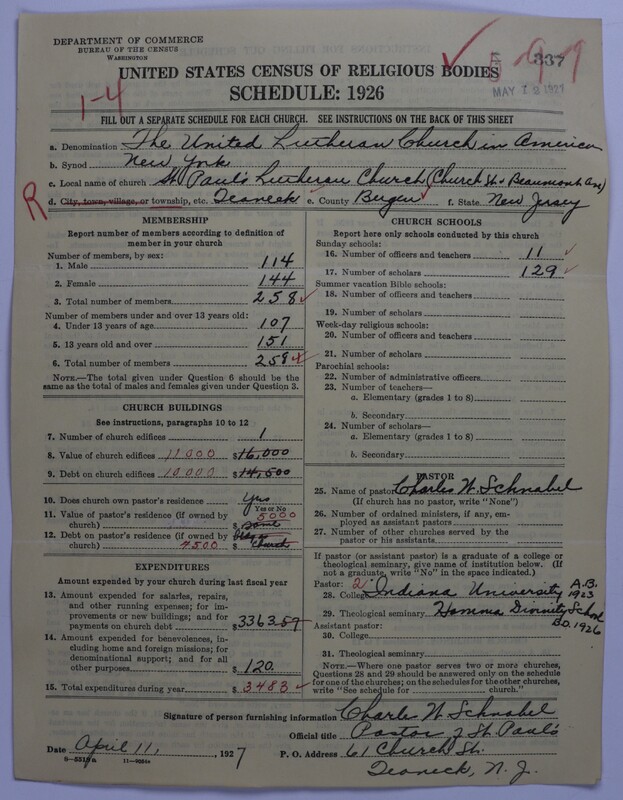 DEPARTMENT OF COMMERCE
BUREAU OF THE CENSUS
WASHINGTON
337
UNITED STATES CENSUS OF RELIGIOUS BODIES
MAY 12 1927
SCHEDULE: 1926
1-4
FILL OUT A SEPARATE SCHEDULE FOR EACH CHURCH. SEE INSTRUCTIONS ON THE BACK OF THIS SHEET
a. Denomination The United Lutheran Church in America
b. Synod New York
c. Local name of church St. Paul's Lutheran Church (Church St & Beaumont Ave)
R d. City, town, village, or township, etc. Teaneck e. County Bergen f. State New Jersey
MEMBERSHIP
Report number of members according to definition of
member in your church
Number of members, by sex:
1. Male 114
2. Female 144
3. Total number of members 258
Number of members under and over 13 years old:
4. Under 13 years of age 107
5. 13 years old and over 151
6. Total number of members 258
NOTE.—The total given under Question 6 should be the
same as the total of males and females given under Question 3.
CHURCH BUILDINGS
See instructions, paragraphs 10 to 12
7. Number of church edifices 1
8. Value of church edifices 11000 $16,000
9. Debt on church edifices 10000 $14,500
10. Does church own pastor's residence yes
Yes or No
11. Value of pastor's residence (if owned by
church) $ 5000 same
12. Debt on pastor's residence (if owned by
church) 4500 $ church
EXPENDITURES
Amount expended by your church during last fiscal year
13. Amount expended for salaries, repairs,
and other running expenses; for im-
provements or new buildings; and for
payments on church debt $ 3363.57
14. Amount expended for benevolences, in-
cluding home and foreign missions; for
denominational support; and for all
other purposes $ 120.
15. Total expenditures during year $ 3483
CHURCH SCHOOLS
Report here only schools conducted by this church
Sunday schools:
16. Number of officers and teachers 11
17. Number of scholars 129
Summer vacation Bible schools:
18. Number of officers and teachers
19. Number of scholars
Week-day religious schools:
20. Number of officers and teachers
21. Number of scholars
Parochial schools:
22. Number of administrative officers
23. Number of teachers—
a. Elementary (grades 1 to 8)
b. Secondary
24. Number of scholars—
a. Elementary (grades 1 to 8)
b. Secondary
PASTOR
25. Name of pastor Charles W. Schnabel
(If church has no pastor, write "None")
26. Number of ordained ministers, if any, em-
ployed as assistant pastors
27. Number of other churches served by the
pastor or his assistants
If pastor (or assistant pastor) is a graduate of a college or
theological seminary, give name of institution below. (If
not a graduate, write "No" in the space indicated.)
Pastor: 2
28. College Indiana University A.B. 1923
29. Theological seminary Hamma Divinity School B.D. 1926
Assistant pastor:
30. College
31. Theological seminary
NOTE.—Where one pastor serves two or more churches,
Questions 28 and 29 should be answered only on the schedule
for one of the churches; on the schedules for the other churches,
write "See schedule for church."
Signature of person furnishing information Charles W. Schnabel
Official title Pastor of St. Paul's
Date April 11, 1927 P. O. Address 61 Church St.
11—9264a
Teaneck, N. J.